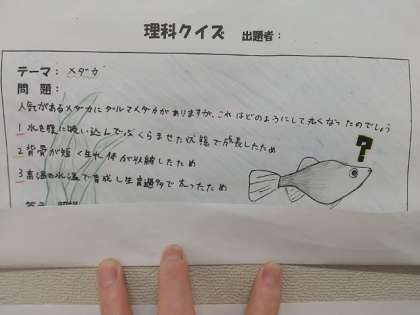 理科クイズ 出題者：
テーマ：メダカ
問 題：
人気があるメダカにダルマメダカがありますが、これはどのようにして丸くなったのでしょう
1 水を腹に吸い込んでふくらませた状態で成長したため
2 背骨が短く生れ体が収縮したため
3 高温の水温で育成し生育過多で太ったため
?